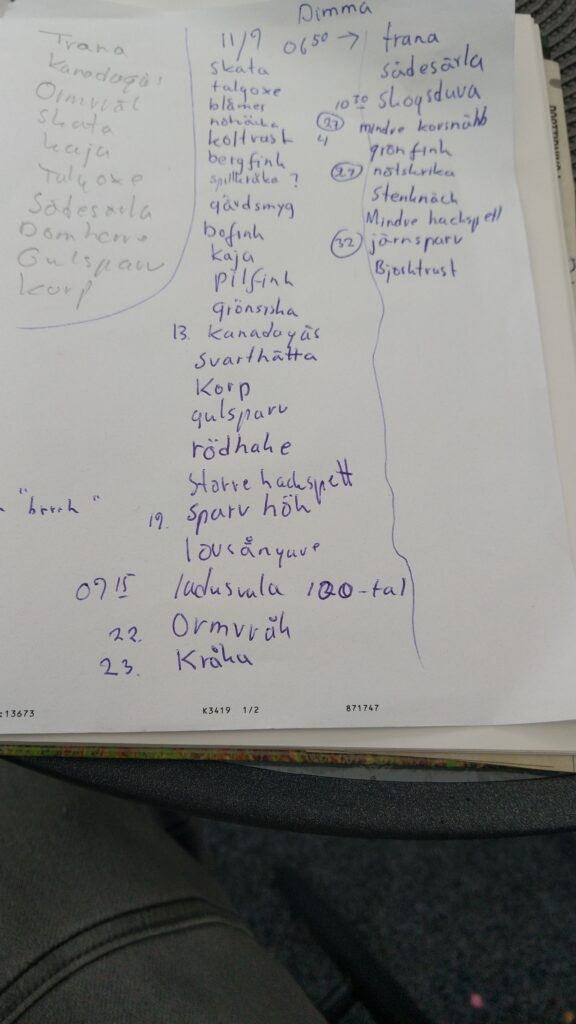 Trana
Kanadagås
Ormvråk
Skata
Kaja
Talgoxe
Sädesärla
Domherre
Gulsparv
Korp
"brrrh"
11/9
skata
talgoxe
blåmes
nötväcka
koltrast
bergfink
spillkråka ?
gärdsmyg
bofink
kaja
pilfink
grönsiska
13. kanadagås
svarthätta
Korp
gulsparv
rödhake
Större hackspett
19. sparvhök
lövsångare
07 15 ladusvala 100-tal
22. Ormvråk
23. Kråka
Dimma
06 50 → trana
sädesärla
10 30 Skogsduva
27 mindre korsnäbb
4
grönfink
29 nötskrika
Stenknäck
Mindre hackspett
32 järnsparv
Björktrast
:13673
K3419 1/2
871747